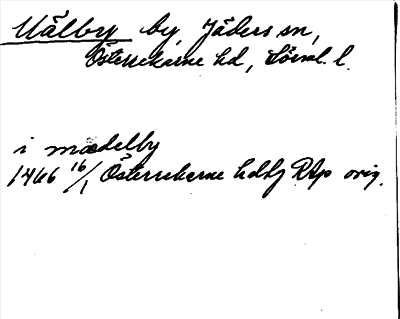 Mälby by, Jäders sn,
Österrekarne hd, Söml. l.
i mædelby
1466 16/1 Österrekarne hdtg RAp orig.